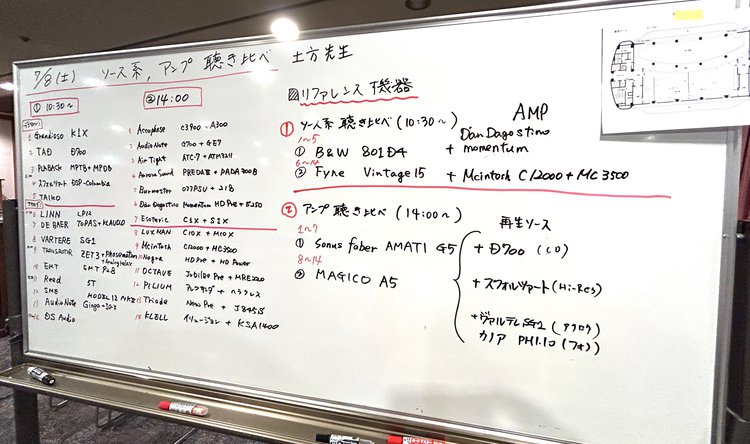 7/8(土) ソース系, アンプ 聴き比べ 土方先生
① 10:30〜
1 Grandioso K1X
2 TAD D700
3 PLAYBACK MPT8+MPD8
4 スフォルツァート DSP-Columba
5 TAIKO
6 LINN LP12
7 DE BAER TOPAS+KLAUDIO
8 VARTERE SG1
9 TRANSROTOR ZET3+Phasemation
10 EMT
11 Reed 5T
12 SME MODEL 12 MK2
13 AudioNote Ginga+IO-X
14 DS Audio
② 14:00
1 Accuphase C3900+A300
2 AudioNote G700+GE7
3 Air Tight ATC-7+ATM3211
4 Aurora Sound PREDA III+PADA300B
5 Burmester 077PSU+218
6 Dan Dagostino Momentum HD Pre+S250
7 Esoteric C1X+S1X
8 LUXMAN C10X+M10X
9 Mcintosh C12000+MC3500
10 Nagra HD Pre+HD Power
11 OCTAVE Jubilee Pre+MRE220
12 PILIUM アレクサンダー+ヘラクレス
13 Triode
14 KLELL イリュージョン+KSA1400
リファレンス機器
① ソース系 聴き比べ (10:30〜)
1〜5
① B&W 801D4
6〜14
② Fyne Vintage15
AMP
+ Dan Dagostino momentum
+ Mcintosh C12000+MC3500
② アンプ聴き比べ (14:00〜)
1〜7
① Sonus faber AMATI G5
8〜14
② MAGICO A5
再生ソース
+ D700 (CD)
+ スフォルツァート (Hi-Res)
+ ヴァルテレSG1 (アナログ)
カノア PH1.10 (フォノ)